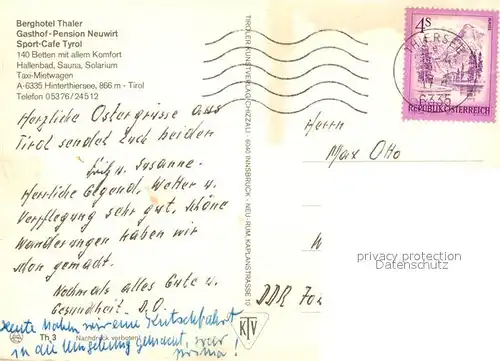 Berghotel Thaler
Gasthof-Pension Neuwirt
Sport-Cafe Tyrol
140 Betten mit allem Komfort
Hallenbad, Sauna, Solarium
Taxi-Mietwagen
A-6335 Hinterthiersee, 866 m - Tirol
Telefon 05376/24512
Herzliche Ostergrüsse aus
Tirol sendet Euch beiden
Fritz u. Susanne.
Herrliche Gegend, Wetter u.
Verpflegung sehr gut, schöne
Wanderungen haben wir
schon gemacht.
Nochmals alles Gute u.
Gesundheit. D.O.
Heute haben wir eine Kutschfahrt
in die Umgebung gemacht, war
prima!
Th 3 Nachdruck verboten
TIROLER KUNSTVERLAG CHIZZALI · 6040 INNSBRUCK - NEU-RUM, KAPLANSTRASSE 10
KTV
4S
REPUBLIK ÖSTERREICH
THIERSEE
6335
Herrn
Max Otto
DDR
privacy protection
watermark